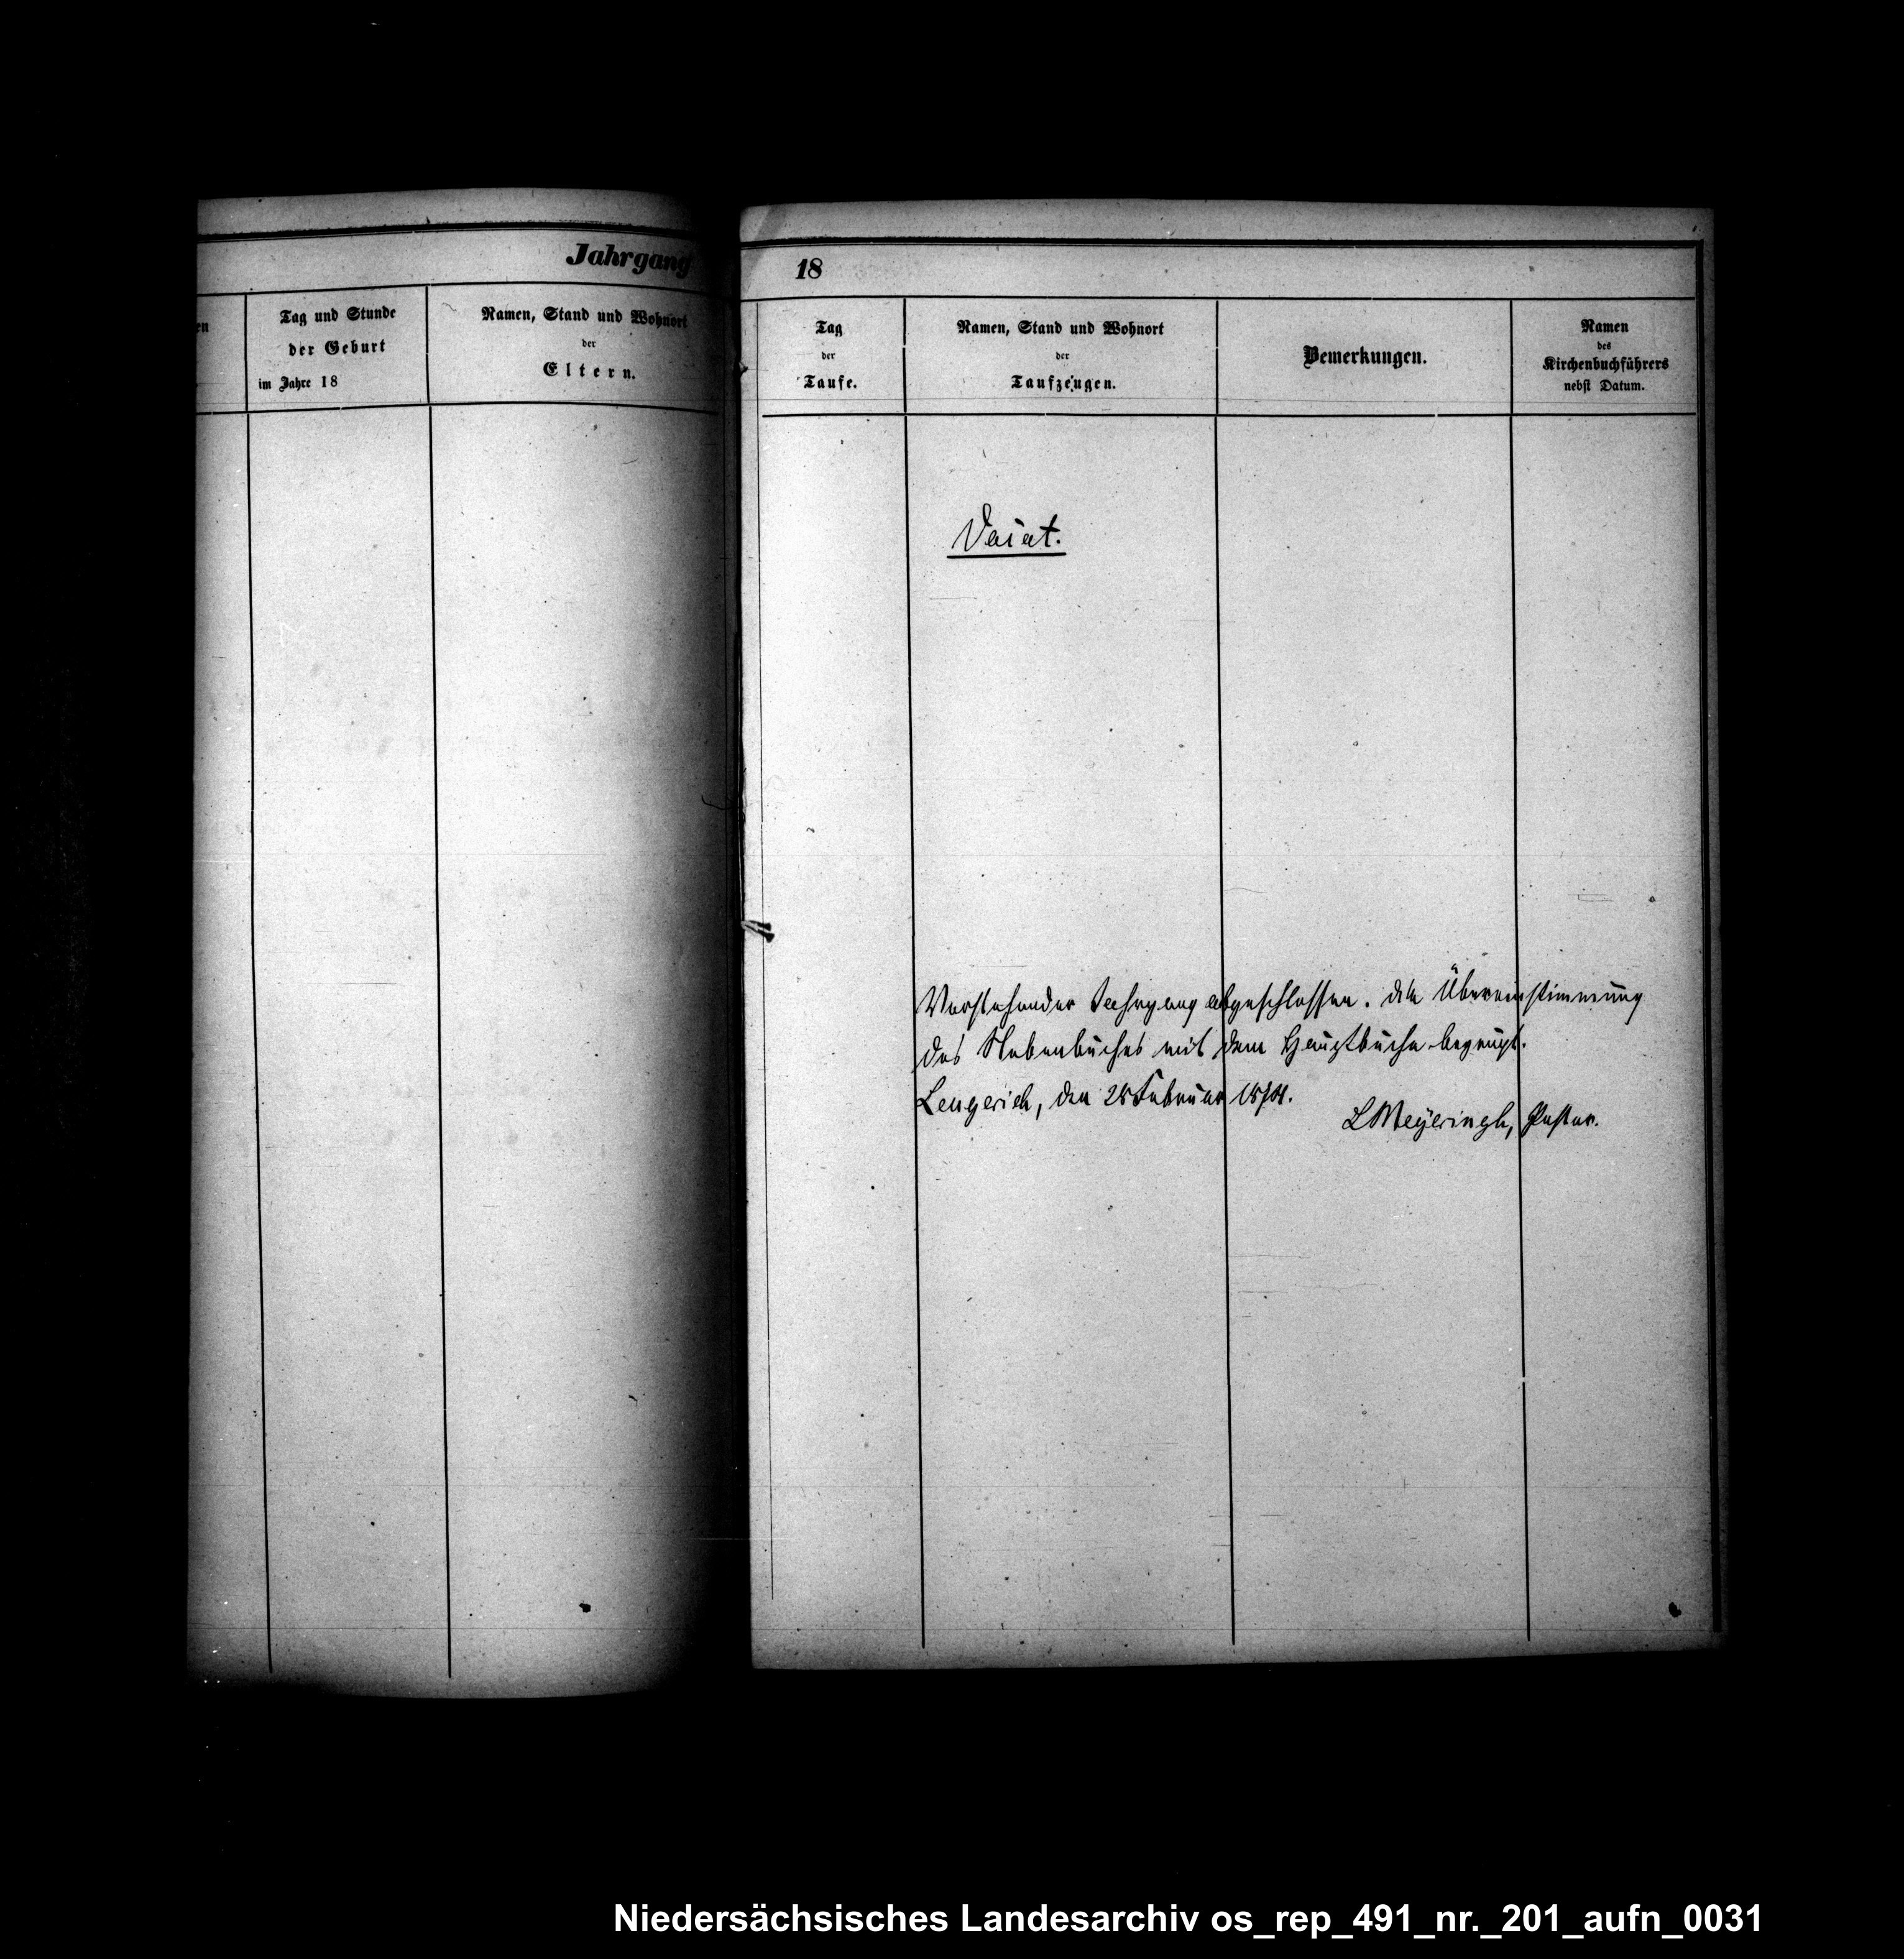 Jahrgang 18
en
Tag und Stunde
der Geburt
im Jahre 18
Namen, Stand und Wohnort
der
Eltern.
Tag
der
Taufe.
Namen, Stand und Wohnort
der
Taufzeugen.
Bemerkungen.
Namen
des
Kirchenbuchführers
nebst Datum.
Vacat.
Vorstehender Jahrgang abgeschlossen. die Übereinstimmung
des Nebenbuches mit dem Hauptbuche bezeugt.
Lengerich, den Februar
LMeyeringh, Pastor.
Niedersächsisches Landesarchiv os_rep_491_nr._201_aufn_0031